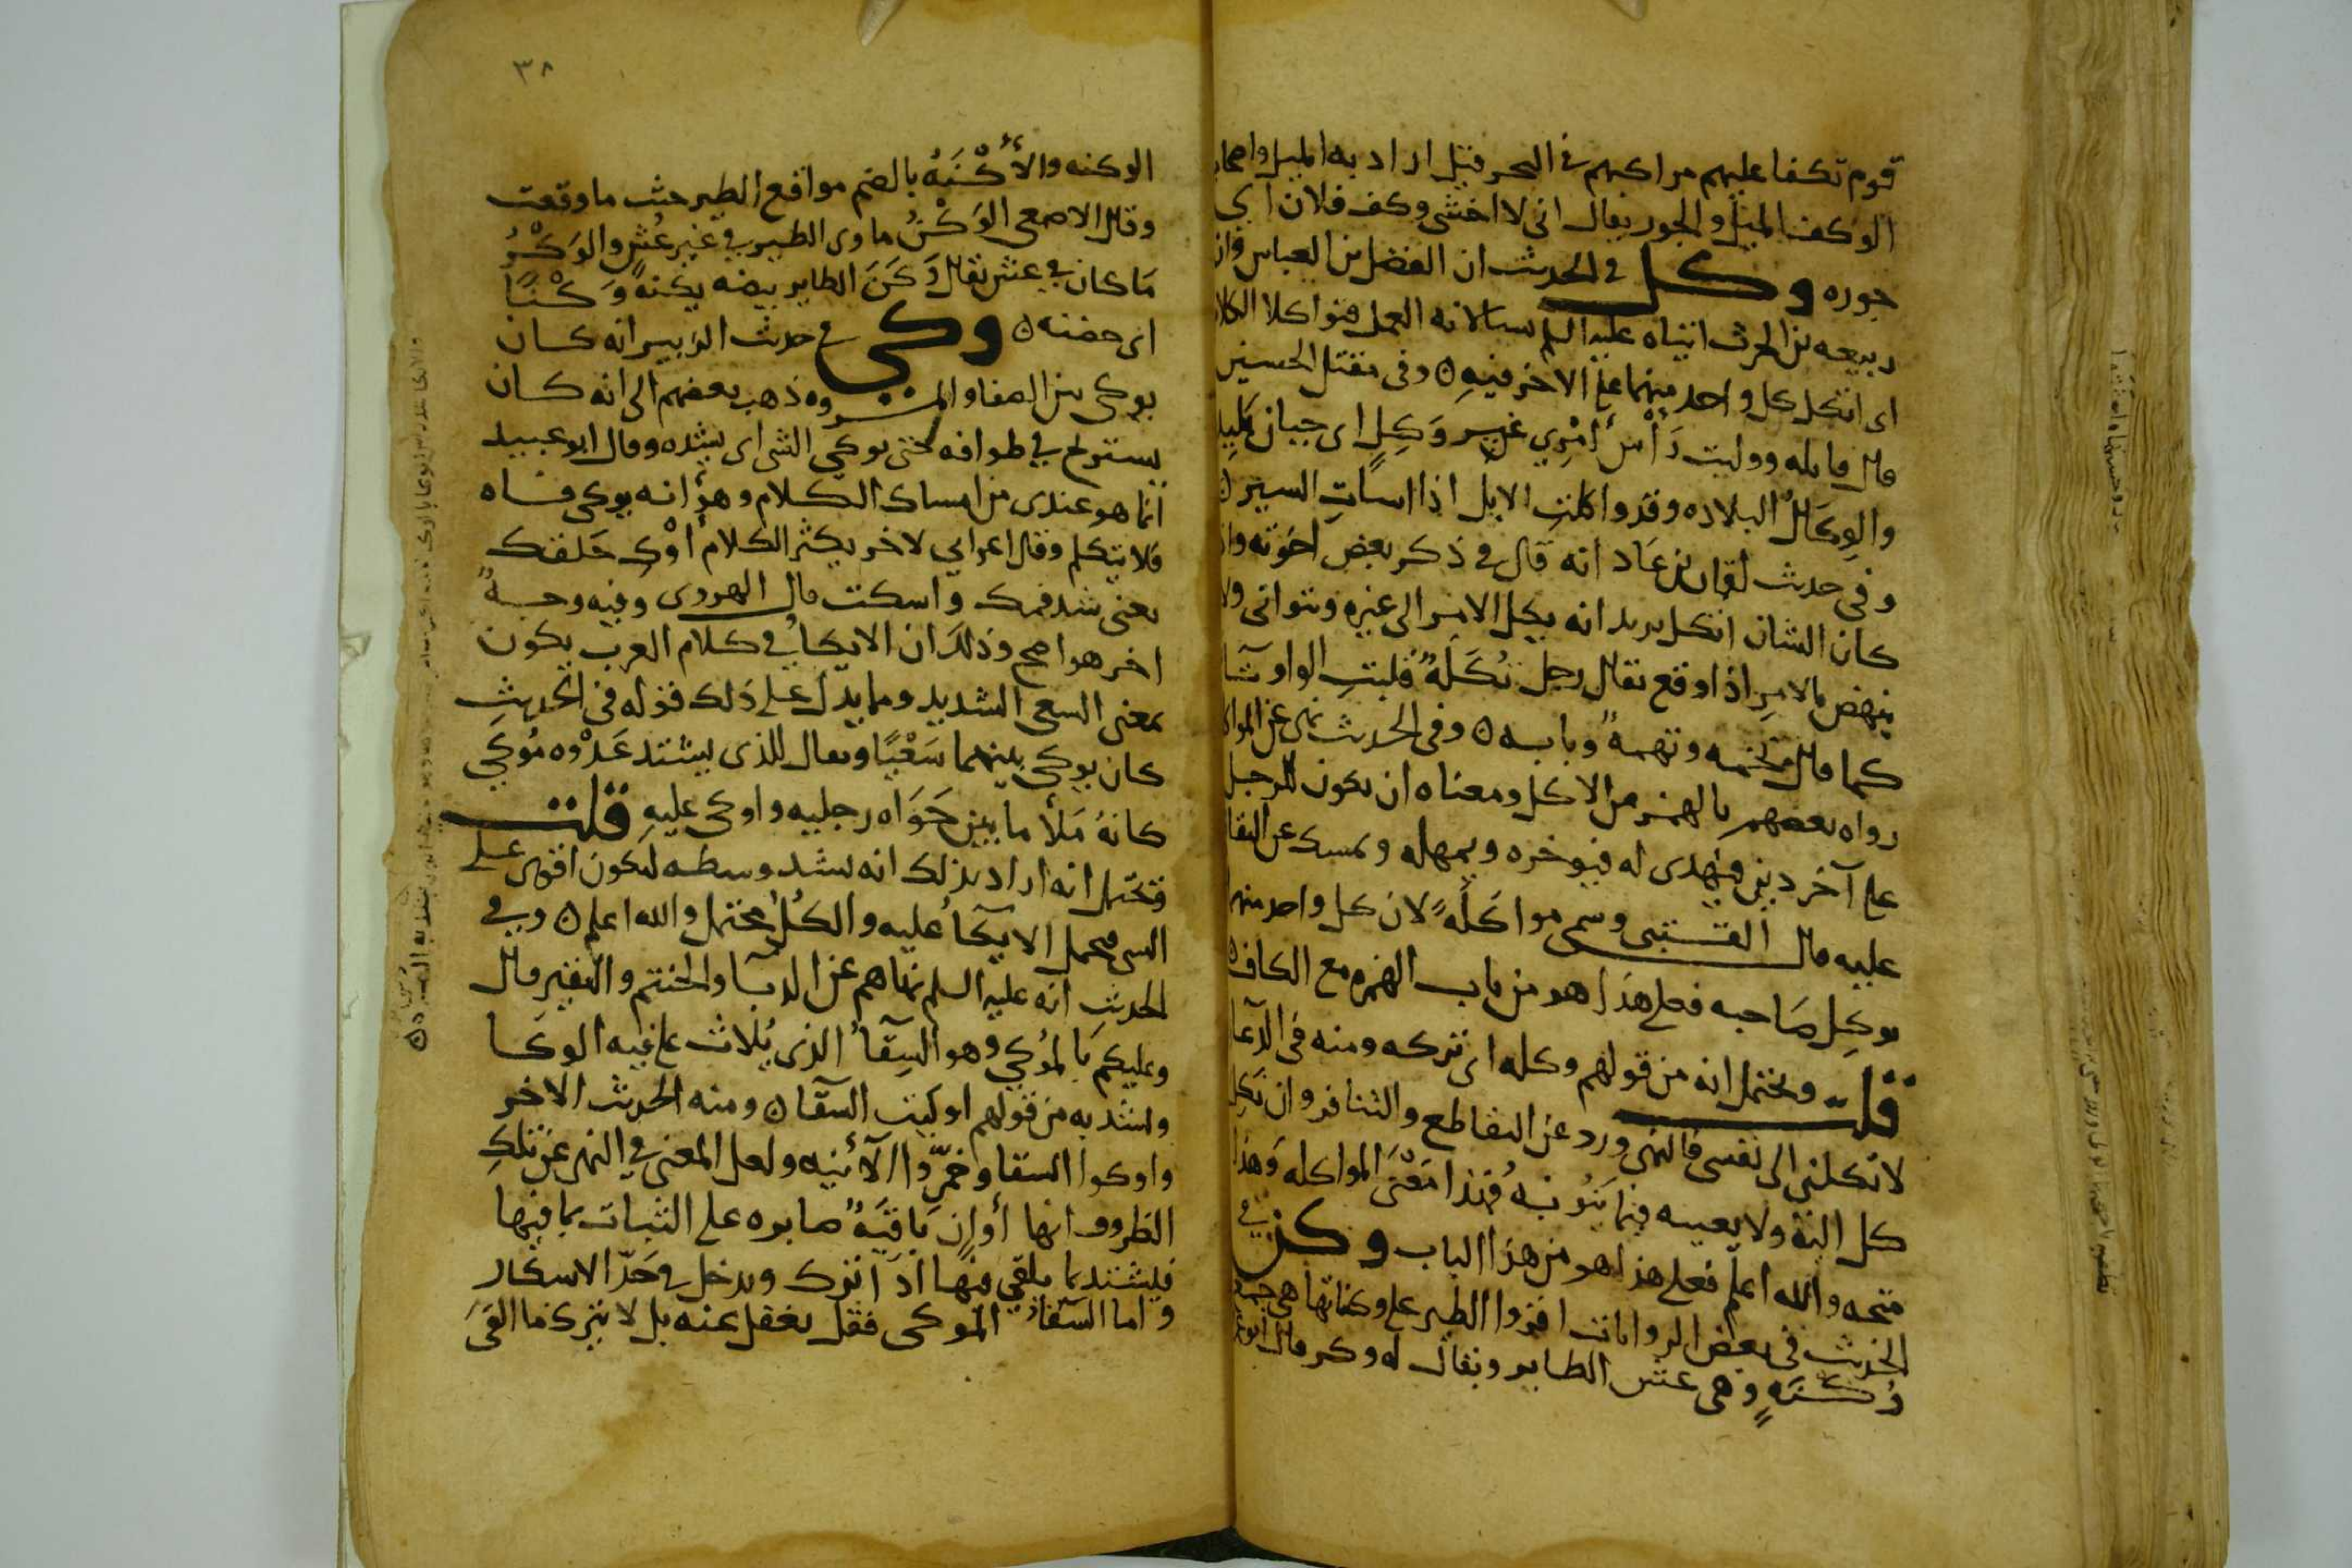 قوم تكفا عليهم مراكبهم في البحر قيل اراد به الميل واصحاب
الوكف الميل والجور يقال اني لا اخشى وكف فلان اي
جوره وكل في الحديث ان الفضل بن العباس وان
ربيعه بن الحرث اتياه عليه السلم يسالانه العمل فتواكلا الكلام
اى اتكل كل واحد منهما على الاخر فيه ه وفى مقتل الحسين
قال قاتله ووليت رَأسَ امْرِيٍ غير وَكِلٍ اى جبان بَلِيد
والوِكَالُ البلاده وقد واكلتِ الابل اذا اساتِ السير ه
وفي حديث لقمان بن عَاد انه قال في ذكر بعض اخوته واذا
كان الشان اتكل يريد انه يكل الامر الى غيره ويتوانى ولا
ينهض بالامرِ اذا وقع يقال رجل تُكَلَةٌ قلبتِ الواو تآ
كما قال تخمه وتهمةٌ وبابه ه وفى الحديث نهى عن المواكله
رواه بعضهم بالهمز من الاكل ومعناه ان يكون للرجل
على آخر دين فيهدى له فيوخره ويمهله ويمسك عن التقاضى
عليه قال القتيبى وسمى مواكَلَةً لان كل واحد منهما
يوكِل صَاحبه فعلى هذا هو من باب الهمزه مع الكاف ه
قلت ويحتمل انه من قولهم وكله اى تركه ومنه في الدعا
لا تكلني الى نفسى فالنهى ورد عن التقاطع والتنافر وان يَكِل
كل اليه ولا يعينه فيما يَنُوبُه فهذا مَعْنَى المواكله وَهذا
متجه والله اعلم فعلى هذا هو من هذا الباب وكن في
الحديث في بعض الروايات اقروا الطير على وكناتها هي جمع
وُكْنَةٍ وهى عش الطاير ويقال له وكر قال ابو
٣٨
الوكنه والأُكْنَةُ بالضم مواقع الطير حيث ما وقعت
وقال الاصمعى الوَكْنُ ماوى الطير في غير عُشٍ والوَكْرُ
مَا كان في عش يقال وَكَنَ الطاير بيضه يكنهُ وَكْنًا
اى حضنه ه وكى في حديث الزبير انه كان
يوكى بين الصفا والمروه ذهب بعضهم الى انه كان
يسترخ في طوافه حتى يوكى الشى اى يشده وقال ابو عبيد
انما هو عندى من امساك الكلام وهو انه يوكى فاه
فلا يتكلم وقال اعرابي لاخر يكثر الكلام أَوْكِ حَلقك
يعنى شد فمك واسكت قال الهروى وفيه وجهٌ
اخر هو اصح وذلك ان الايكا في كلام العرب يكون
بمعنى السعى الشديد ومما يدل على ذلك قوله في الحديث
كان يوكى بينهما سَعْيًا ويقال للذى يشتد عَدْوه مُوكي
كانهُ مَلأَ ما بين خَوَاه رجليه واوكى عليهِ قلت
فتحتمل انه اراد بذلك انه يشد وسطه ليكون اقوى على
السعى فيحمل الايكآ عليه والكُلُ محتمل والله اعلم ه وفي
الحديث انه عليه السلم نهاهم عن الدبا والحنتم والنقير قال
وعليكم بِالمُوكي وهو السِقآُ الذى يُلاث على فيه الوكا
واشتد به من قولهم اوكيت السقآ ه ومنه الحديث الاخر
واوكوا السقا وخَمِّروا الآنيه ولعل المعنى في النهى عن تلك
الظروف انها أَوانٍ باقيَةٌ صابره على الثبات بما فيها
فيشتد بما يلقى فيها اذا ترك ويدخل في حَدّ الاسكار
واما السِقآُ الموكى فقل يغفل عنه بل لا يترك ما القى